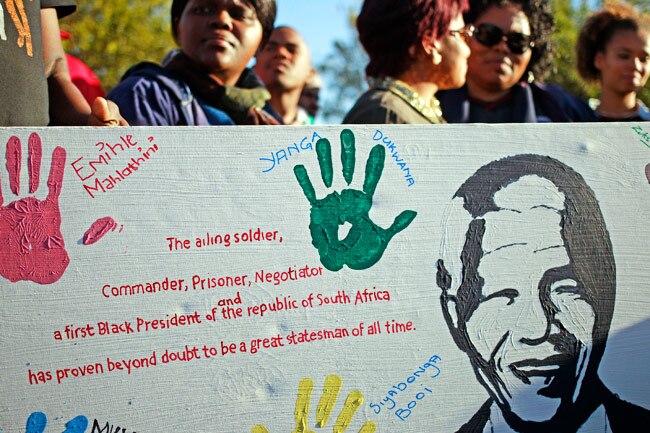 Emihle
Mahlathini
YANGA DUKWANA
The ailing soldier,
Commander, Prisoner, Negotiator
and
a first Black President of the republic of South Africa
has proven beyond doubt to be a great statesman of all time.
Siyabonga
Booi